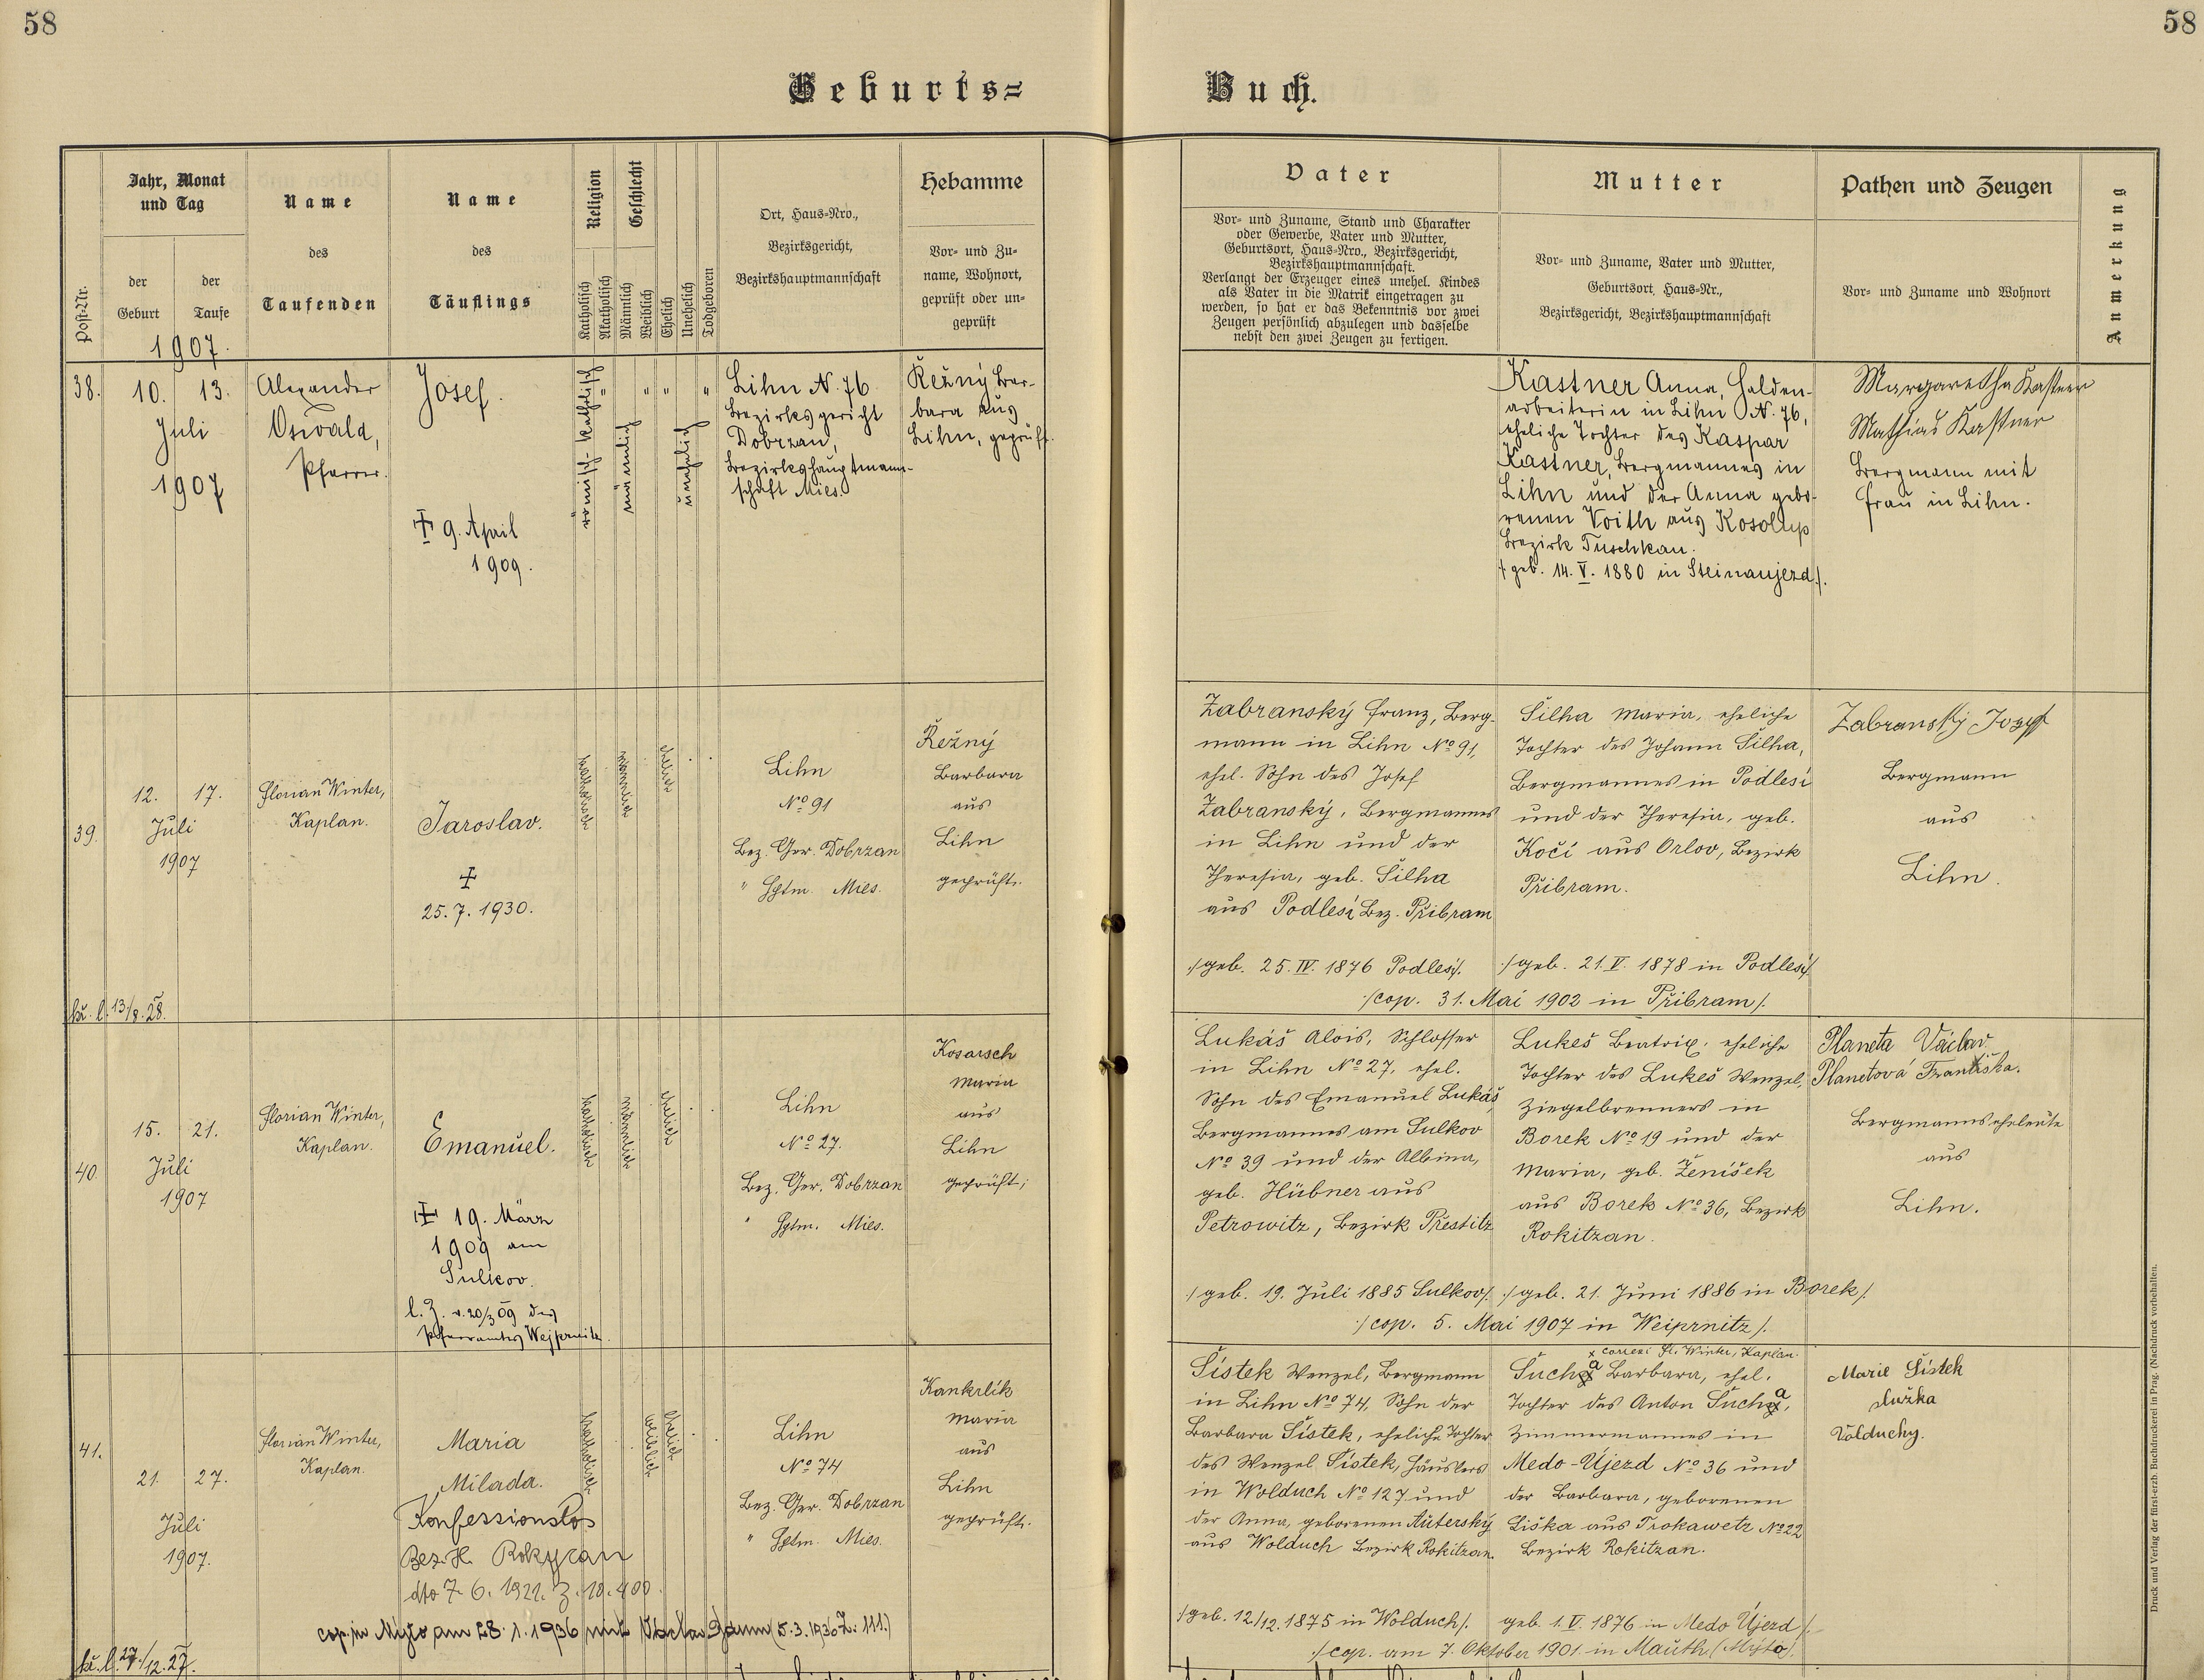 58
58
Geburts=
Buch.
Post-Nr.
Jahr, Monat
und Tag
der
Geburt
der
Taufe
1907.
Name
des
Taufenden
Name
des
Täuflings
Religion
Katholisch
Akatholisch
Geschlecht
Männlich
Weiblich
Ehelich
Unehelich
Todgeboren
Ort, Haus-Nro.,
Bezirksgericht,
Bezirkshauptmannschaft
Hebamme
Vor- und Zu-
name, Wohnort,
geprüft oder un-
geprüft
Vater
Vor- und Zuname, Stand und Charakter
oder Gewerbe, Vater und Mutter,
Geburtsort, Haus-Nro., Bezirksgericht,
Bezirkshauptmannschaft.
Verlangt der Erzeuger eines unehel. Kindes
als Vater in die Matrik eingetragen zu
werden, so hat er das Bekenntnis vor zwei
Zeugen persönlich abzulegen und dasselbe
nebst den zwei Zeugen zu fertigen.
Mutter
Vor- und Zuname, Vater und Mutter,
Geburtsort, Haus-Nr.,
Bezirksgericht, Bezirkshauptmannschaft
Pathen und Zeugen
Vor- und Zuname und Wohnort
Anmerkung
38.
10. 13.
Juli
1907
Alexander
Oswald,
Pfarrer.
Josef.
9. April
1909.
römisch-katholisch
männlich
unehelich
Lihn N. 76
Bezirksgericht
Dobrzan,
Bezirkshauptmann-
schaft Mies.
Řežný Bar-
bara aus
Lihn, geprüft.
Kastner Anna, Halden-
arbeiterin in Lihn N. 76,
eheliche Tochter des Kaspar
Kastner, Bergmannes in
Lihn und der Anna gebo-
renen Voith aus Kosolup
Bezirk Tuschkau.
geb. 14. V. 1880 in Steinaujezd
Margaretha Kastner
Mathias Kastner
Bergmann mit
Frau in Lihn.
39.
12. 17.
Juli
1907
13/8. 28.
Florian Winter,
Kaplan.
Jaroslav.
25. 7. 1930.
katholisch
männlich
ehelich
Lihn
No 91
Bez. Ger. Dobrzan
" Hptm. Mies.
Řežný
Barbara
aus
Lihn
geprüft.
Zabranský Franz, Berg-
mann in Lihn No 91,
ehel. Sohn des Josef
Zabranský, Bergmannes
in Lihn und der
Theresia, geb. Šilha
aus Podlesí Bez. Přibram
/geb. 25. IV. 1876 Podlesí/.
Šilha Maria, eheliche
Tochter des Johann Šilha,
Bergmannes in Podlesí
und der Theresia, geb.
Kočí aus Orlov, Bezirk
Přibram.
/geb. 21. V. 1878 in Podlesí/
/cop. 31. Mai 1902 in Přibram/.
Zabranský Josef
Bergmann
aus
Lihn.
40.
15. 21.
Juli
1907
Florian Winter,
Kaplan.
Emanuel.
19. März
1909 am
Sulkov.
l. Z. v. 20/3 09 des
Pfarramtes Wejprnitz.
katholisch
männlich
ehelich
Lihn
No 27.
Bez. Ger. Dobrzan
" Hptm. Mies.
Kosarsch
Maria
aus
Lihn
geprüft;
Lukáš Alois, Schlosser
in Lihn No 27, ehel.
Sohn des Emanuel Lukáš,
Bergmannes am Sulkov
No 39 und der Albina,
geb. Hübner aus
Petrowitz, Bezirk Přestitz
/geb. 19. Juli 1885 Sulkov/.
Lukeš Beatrix, eheliche
Tochter des Lukeš Wenzel,
Ziegelbrenners in
Borek No 19 und der
Maria, geb. Ženíšek
aus Borek No 36, Bezirk
Rokitzan.
/geb. 21. Juni 1886 in Borek/.
/cop. 5. Mai 1907 in Weiprnitz/.
Planeta Václav.
Planetová Františka.
Bergmannseheleute
aus
Lihn.
41.
21. 27.
Juli
1907.
27./12. 27.
Florian Winter,
Kaplan.
Maria
Milada.
Konfessionslos
Bez. H. Rokycan
dto 7. 6. 1921. Z. 18.400.
cop. in Mýto am 28. 1. 1936 mit Václav (5. 3. 1936 Z. 111.)
katholisch
weiblich
ehelich
Lihn
No 74
Bez. Ger. Dobrzan
" Hptm. Mies.
Kankrlík
Maria
aus
Lihn
geprüft.
Šístek Wenzel, Bergmann
in Lihn No 74, Sohn der
Barbara Šístek, eheliche Tochter
des Wenzel Šístek, Häuslers
in Wolduch No 127 und
der Anna, geborenen Auterský
aus Wolduch Bezirk Rokitzan.
/geb. 12/12. 1875 in Wolduch/.
x correxi Fl. Winter, Kaplan.
Sucha Barbara, ehel.
Tochter des Anton Sucha,
Zimmermannes in
Medo-Újezd No 36 und
der Barbara, geborenen
Liška aus Trokawetz No 22
Bezirk Rokitzan.
geb. 1. V. 1876 in Medo Újezd/.
/cop. am 7. Oktober 1901 in Mauth (Mýto)/.
Marie Šístek
služka
Volduchy.
Druck und Verlag der fürst-erzb. Buchdruckerei in Prag. (Nachdruck vorbehalten.